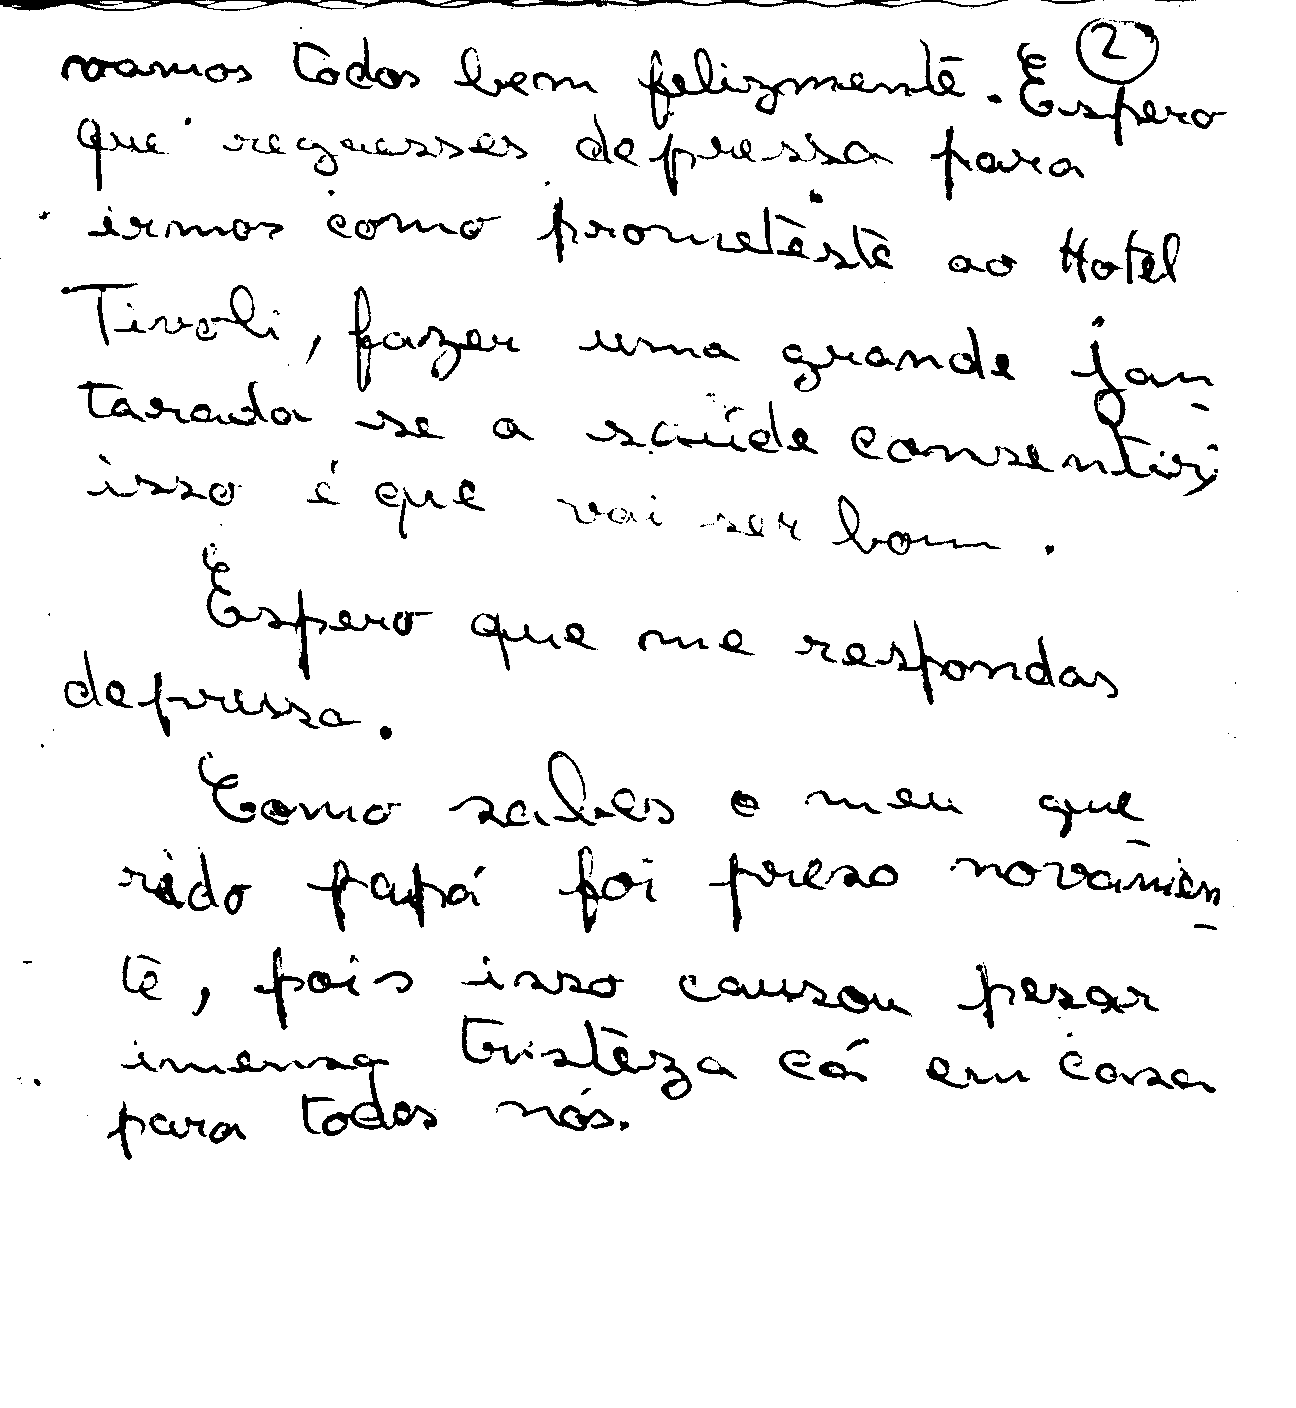 2
vamos todos bem felizmente. Espero
que regresses depressa para
irmos como prometeste ao Hotel
Tivoli, fazer uma grande jan
tarada se a saúde consentir;
isso é que vai ser bom.
Espero que me respondas
depressa.
Como sabes o meu que
rido papá foi preso novamen
te, pois isso causou pesar
imensa tristeza cá em casa
para todos nós.